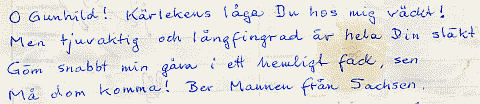 O Gunhild! Kärlekens låga Du hos mig väckt!
Men tjuvaktig och långfingrad är hela Din släkt
Göm snabbt min gåva i ett hemligt fack, sen
Må dom komma! Ber Mannen från Sachsen.